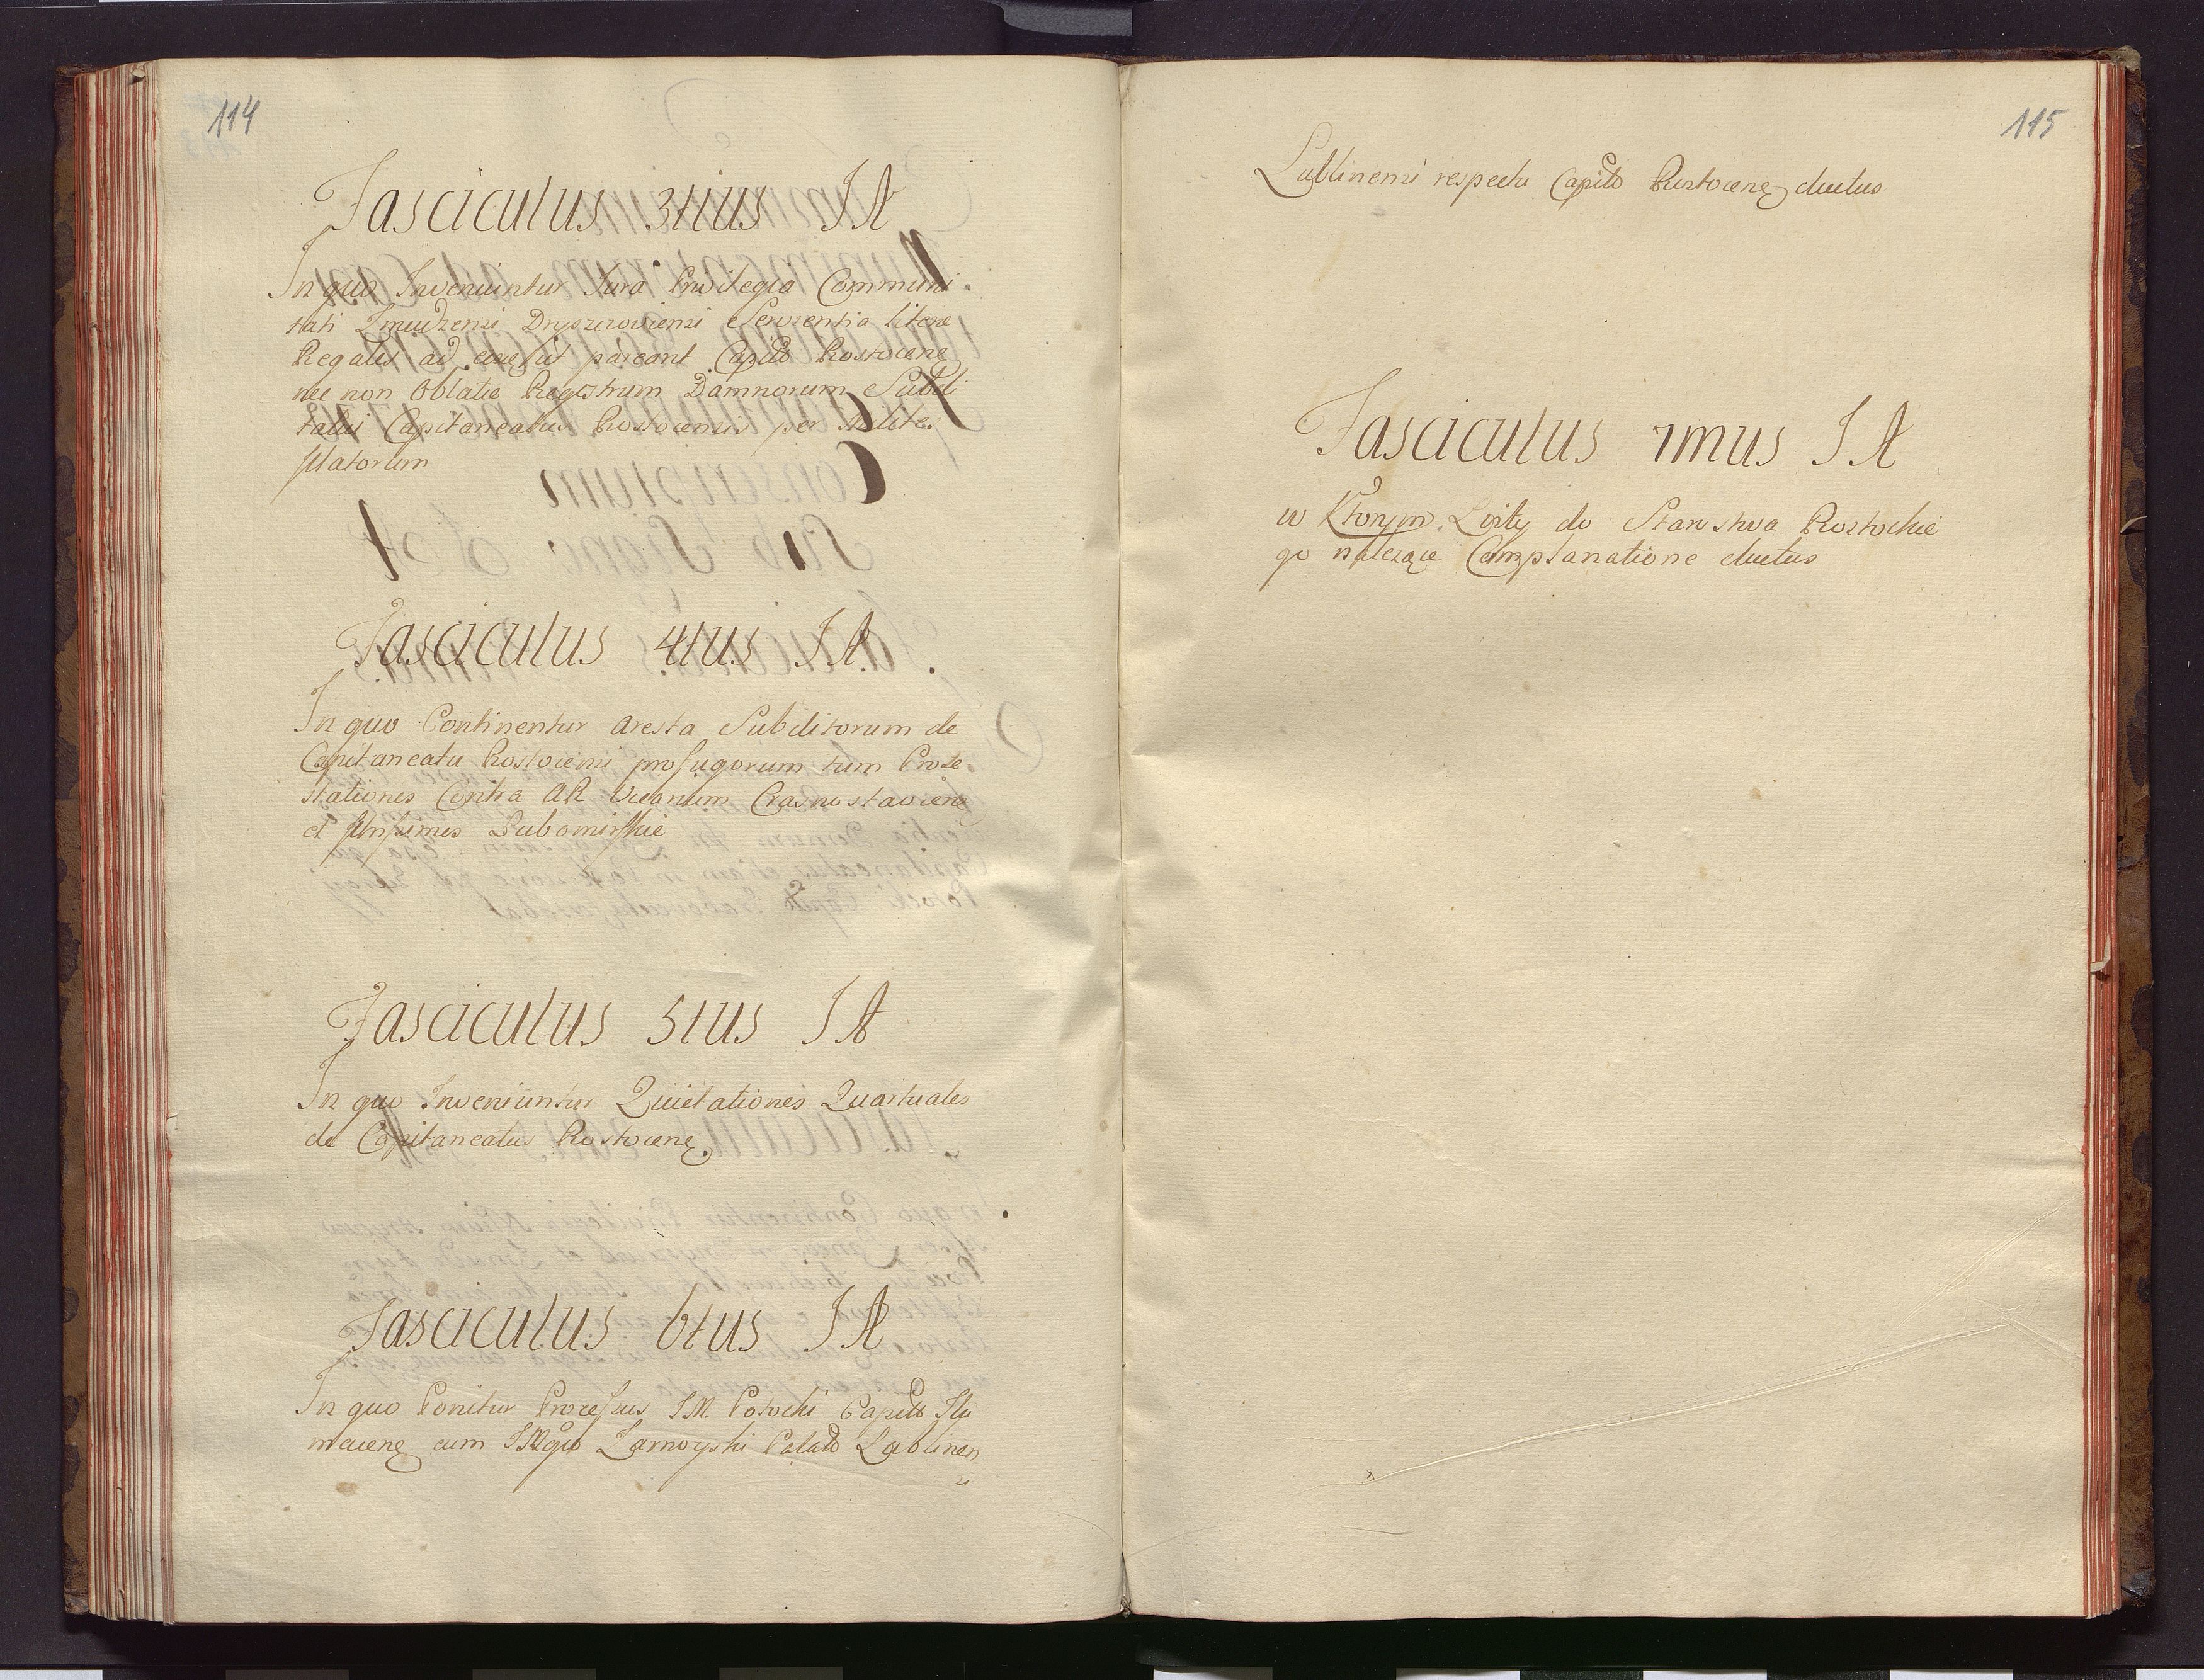 114
Fasciculus 3tius J A
In quo Inveniuntur Jura Privilegia Communi
tati Zmudzensi Dryszczoviensi Servientia litere
Regales ad ut pareant Capito Rostocens
nec non Oblatæ Registrum Damnorum Subdi
talui Capitaneatus Rostocensis per Milites
illatorum
Fasciculus 4tus J A
In quo Continentur Aresta Subditorum de
Capitaneatu Rostociensi profugorum tum Prote
stationes Contra AR Vicarium Crasnostaviens
et Lubomirskie
Fasciculus 5tus J A
In quo Inveniuntur Quietationes Quartuales
de Capitaneatus Rostociens
Fasciculus 6tus J A
In quo Ponitur Processus J M. Potocki Capito Tlu
maciens cum Zamoyski Palato Lublinen
115
Lublinensi respectu Capito Rostociens ductus
Fasciculus 7mus J A
w Ktorym Lvity do Starostwa Rostockie
go należące Complanatione ductus